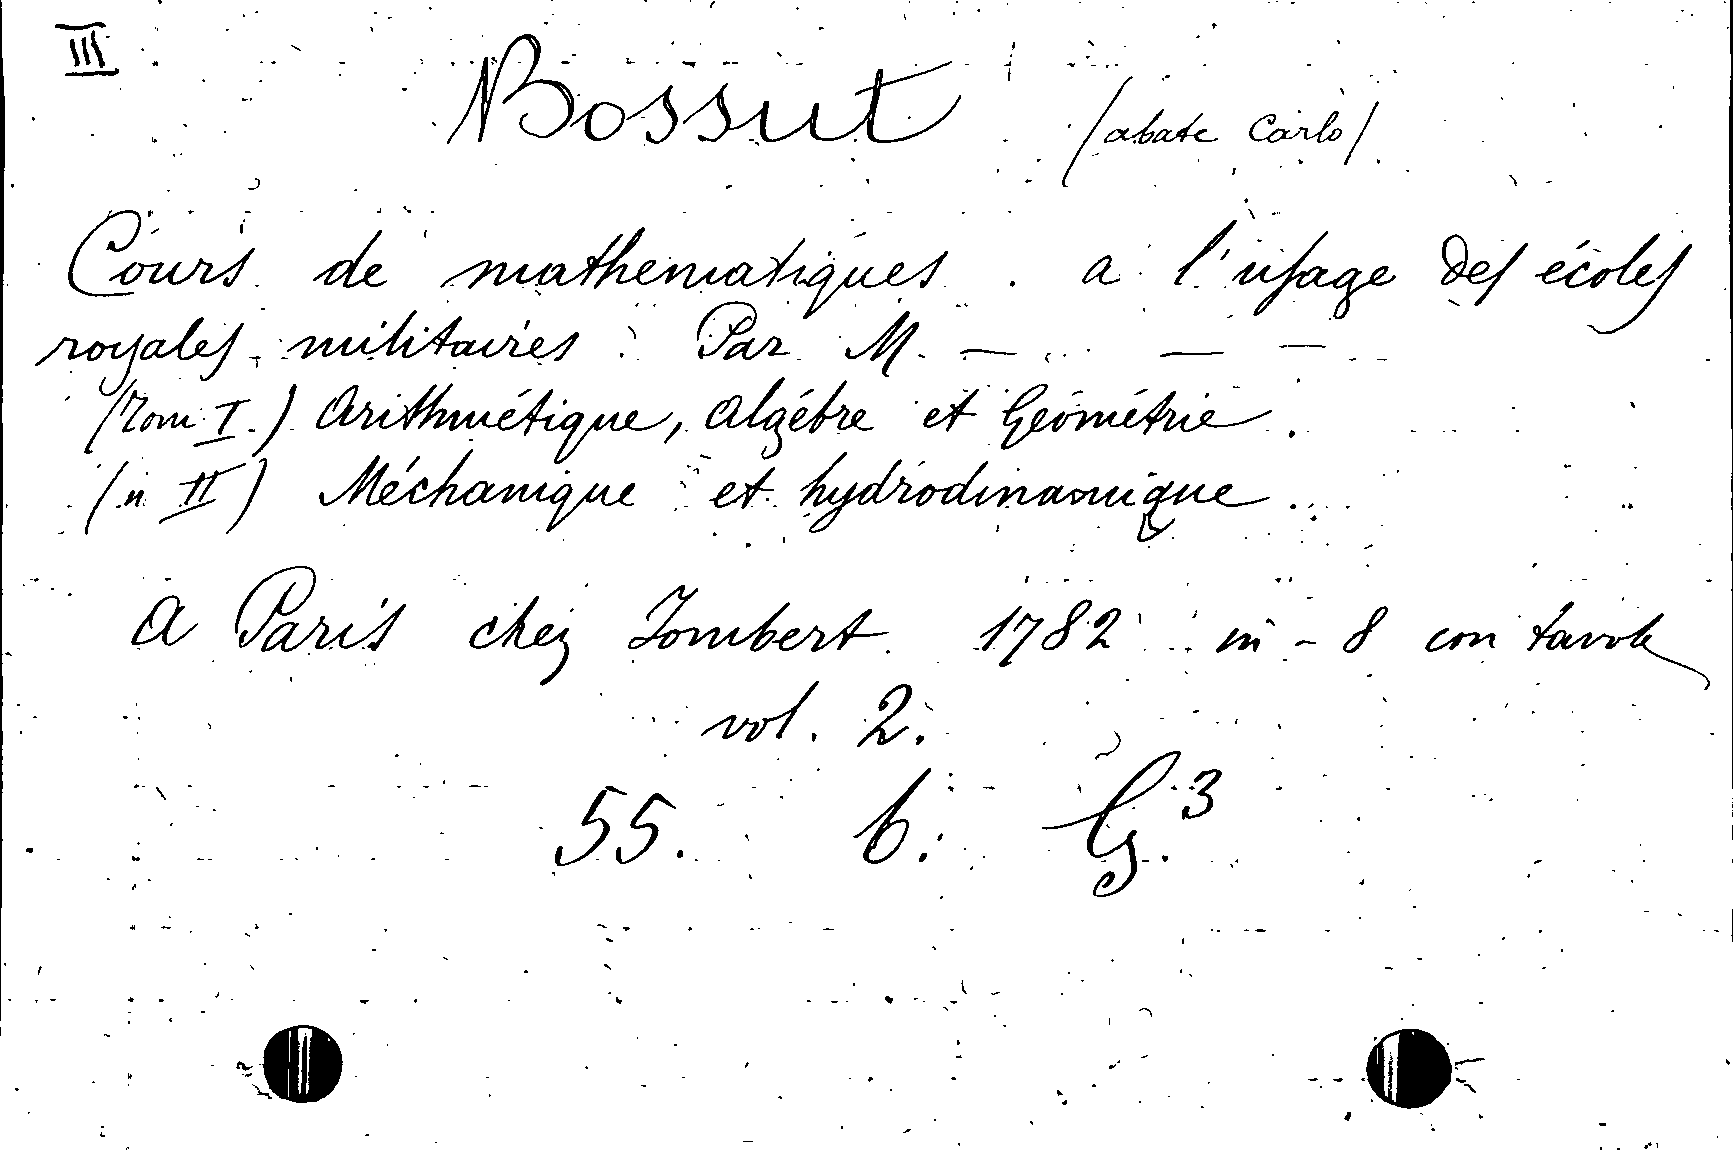 III
Bossut (abate Carlo)
Cours de mathematiques . a l'usage des écoles
royales militaires . Par M. — — —
(Tom I.) Arithmétique, Algébre et Géométrie .
(" II) Méchanique et hydrodinamique .
A Paris chez Jombert 1782 in-8 con tavole
vol. 2.
55. b. G.³